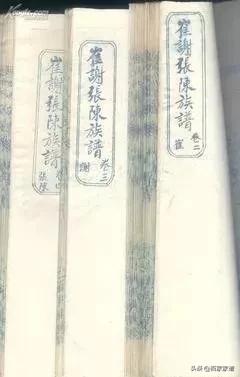 崔謝張陳族譜
卷二
崔
崔謝張陳族譜
卷三
謝
崔謝張陳族譜
張陳
头条